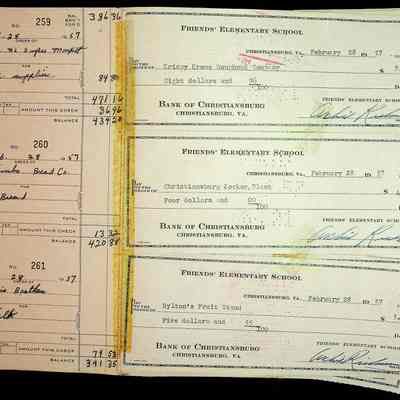 NO. 259
BAL. BRO'T FOR'D 386 36
28 57
supplies
84 80
471 16
AMOUNT THIS CHECK 36 96
BALANCE 434 20
NO. 260
28 1957
Bread Co.
Bread
TOTAL
AMOUNT THIS CHECK 13 32
BALANCE 420 88
NO. 261
28 1957
TOTAL
AMOUNT THIS CHECK 79 53
BALANCE 341 35
FRIENDS' ELEMENTARY SCHOOL
CHRISTIANSBURG, VA. February 28 1957
PAY TO THE ORDER OF Krispy Kreme Doughnut Company $
Eight dollars and 96/100
BANK OF CHRISTIANSBURG
CHRISTIANSBURG, VA.
FRIENDS' ELEMENTARY SCHOOL
FRIENDS' ELEMENTARY SCHOOL
CHRISTIANSBURG, VA. February 28 1957
PAY TO THE ORDER OF Christiansburg Locker Plant
Four dollars and 00/100
BANK OF CHRISTIANSBURG
CHRISTIANSBURG, VA.
FRIENDS' ELEMENTARY SCHOOL
FRIENDS' ELEMENTARY SCHOOL
CHRISTIANSBURG, VA. February 28 1957
PAY TO THE ORDER OF Rylton's Fruit Stand
Five dollars and 55/100
BANK OF CHRISTIANSBURG
CHRISTIANSBURG, VA.
FRIENDS' ELEMENTARY SCHOOL